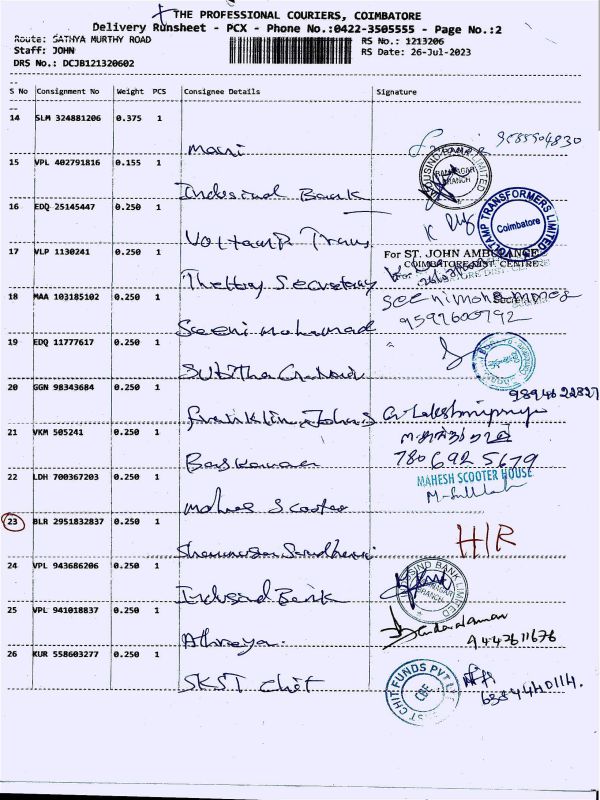 THE PROFESSIONAL COURIERS, COIMBATORE
Delivery Runsheet - PCX - Phone No.:0422-3505555 - Page No.:2
Route: SATHYA MURTHY ROAD
RS No.: 1213206
Staff: JOHN
RS Date: 26-Jul-2023
DRS No.: DCJB121320602
S No Consignment No Weight PCS Consignee Details Signature
14 SLM 324881206 0.375 1
Mani
15 VPL 402791816 0.155 1
Indusind Bank
BRANCH
LIMITED
16 EDQ 25145447 0.250 1
Voltamp Trans
VOLTAMP TRANSFORMERS LIMITED
Coimbatore
17 VLP 1130241 0.250 1
For ST. JOHN AMBULANCE
COIMBATORE DIST CENTRE
The Hony Secretary
18 MAA 103185102 0.250 1
Seeni mohamed
9597600792
19 EDQ 11777617 0.250 1
20 GGN 98343684 0.250 1
9894622827
Franklin Johns
21 VKM 505241 0.250 1
Baskaran
780 692 5679
22 LDH 700367203 0.250 1
MAHESH SCOOTER HOUSE
Scooter
23 BLR 2951832837 0.250 1
24 VPL 943686206 0.250 1
Indusind Bank
INDUSIND BANK LIMITED
BRANCH
25 VPL 941018837 0.250 1
Athreya.
9443611676
26 KUR 558603277 0.250 1
SKST chit
SKST CHIT FUNDS PVT LTD
CBE